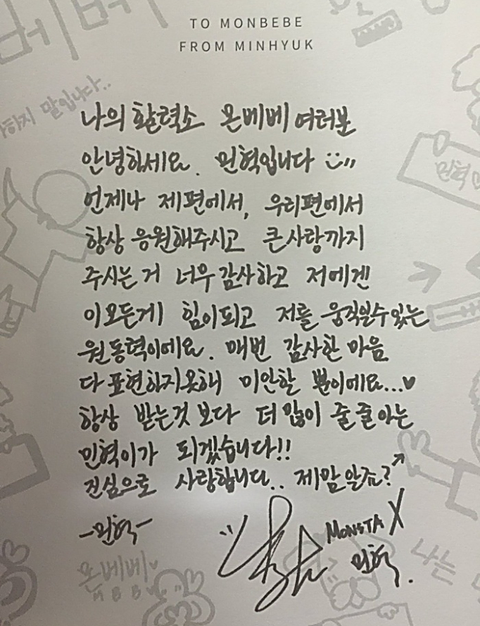 TO MONBEBE
FROM MINHYUK
나의 활력소 몬베베 여러분
안녕하세요. 민혁입니다
언제나 제편에서, 우리편에서
항상 응원해주시고 큰사랑까지
주시는 거 너무 감사하고 저에겐
이모든게 힘이되고 저를 움직일수있는
원동력이에요. 매번 감사한 마음
다 표현하지못해 미안할 뿐이에요...♡
항상 받는것 보다 더 많이 줄 줄 아는
민혁이가 되겠습니다!!
진심으로 사랑합니다.. 제맘 알죠?
-민혁-
MONSTA X
민혁.
하지 말입니다..
민혁
몬베베
MBB
나는